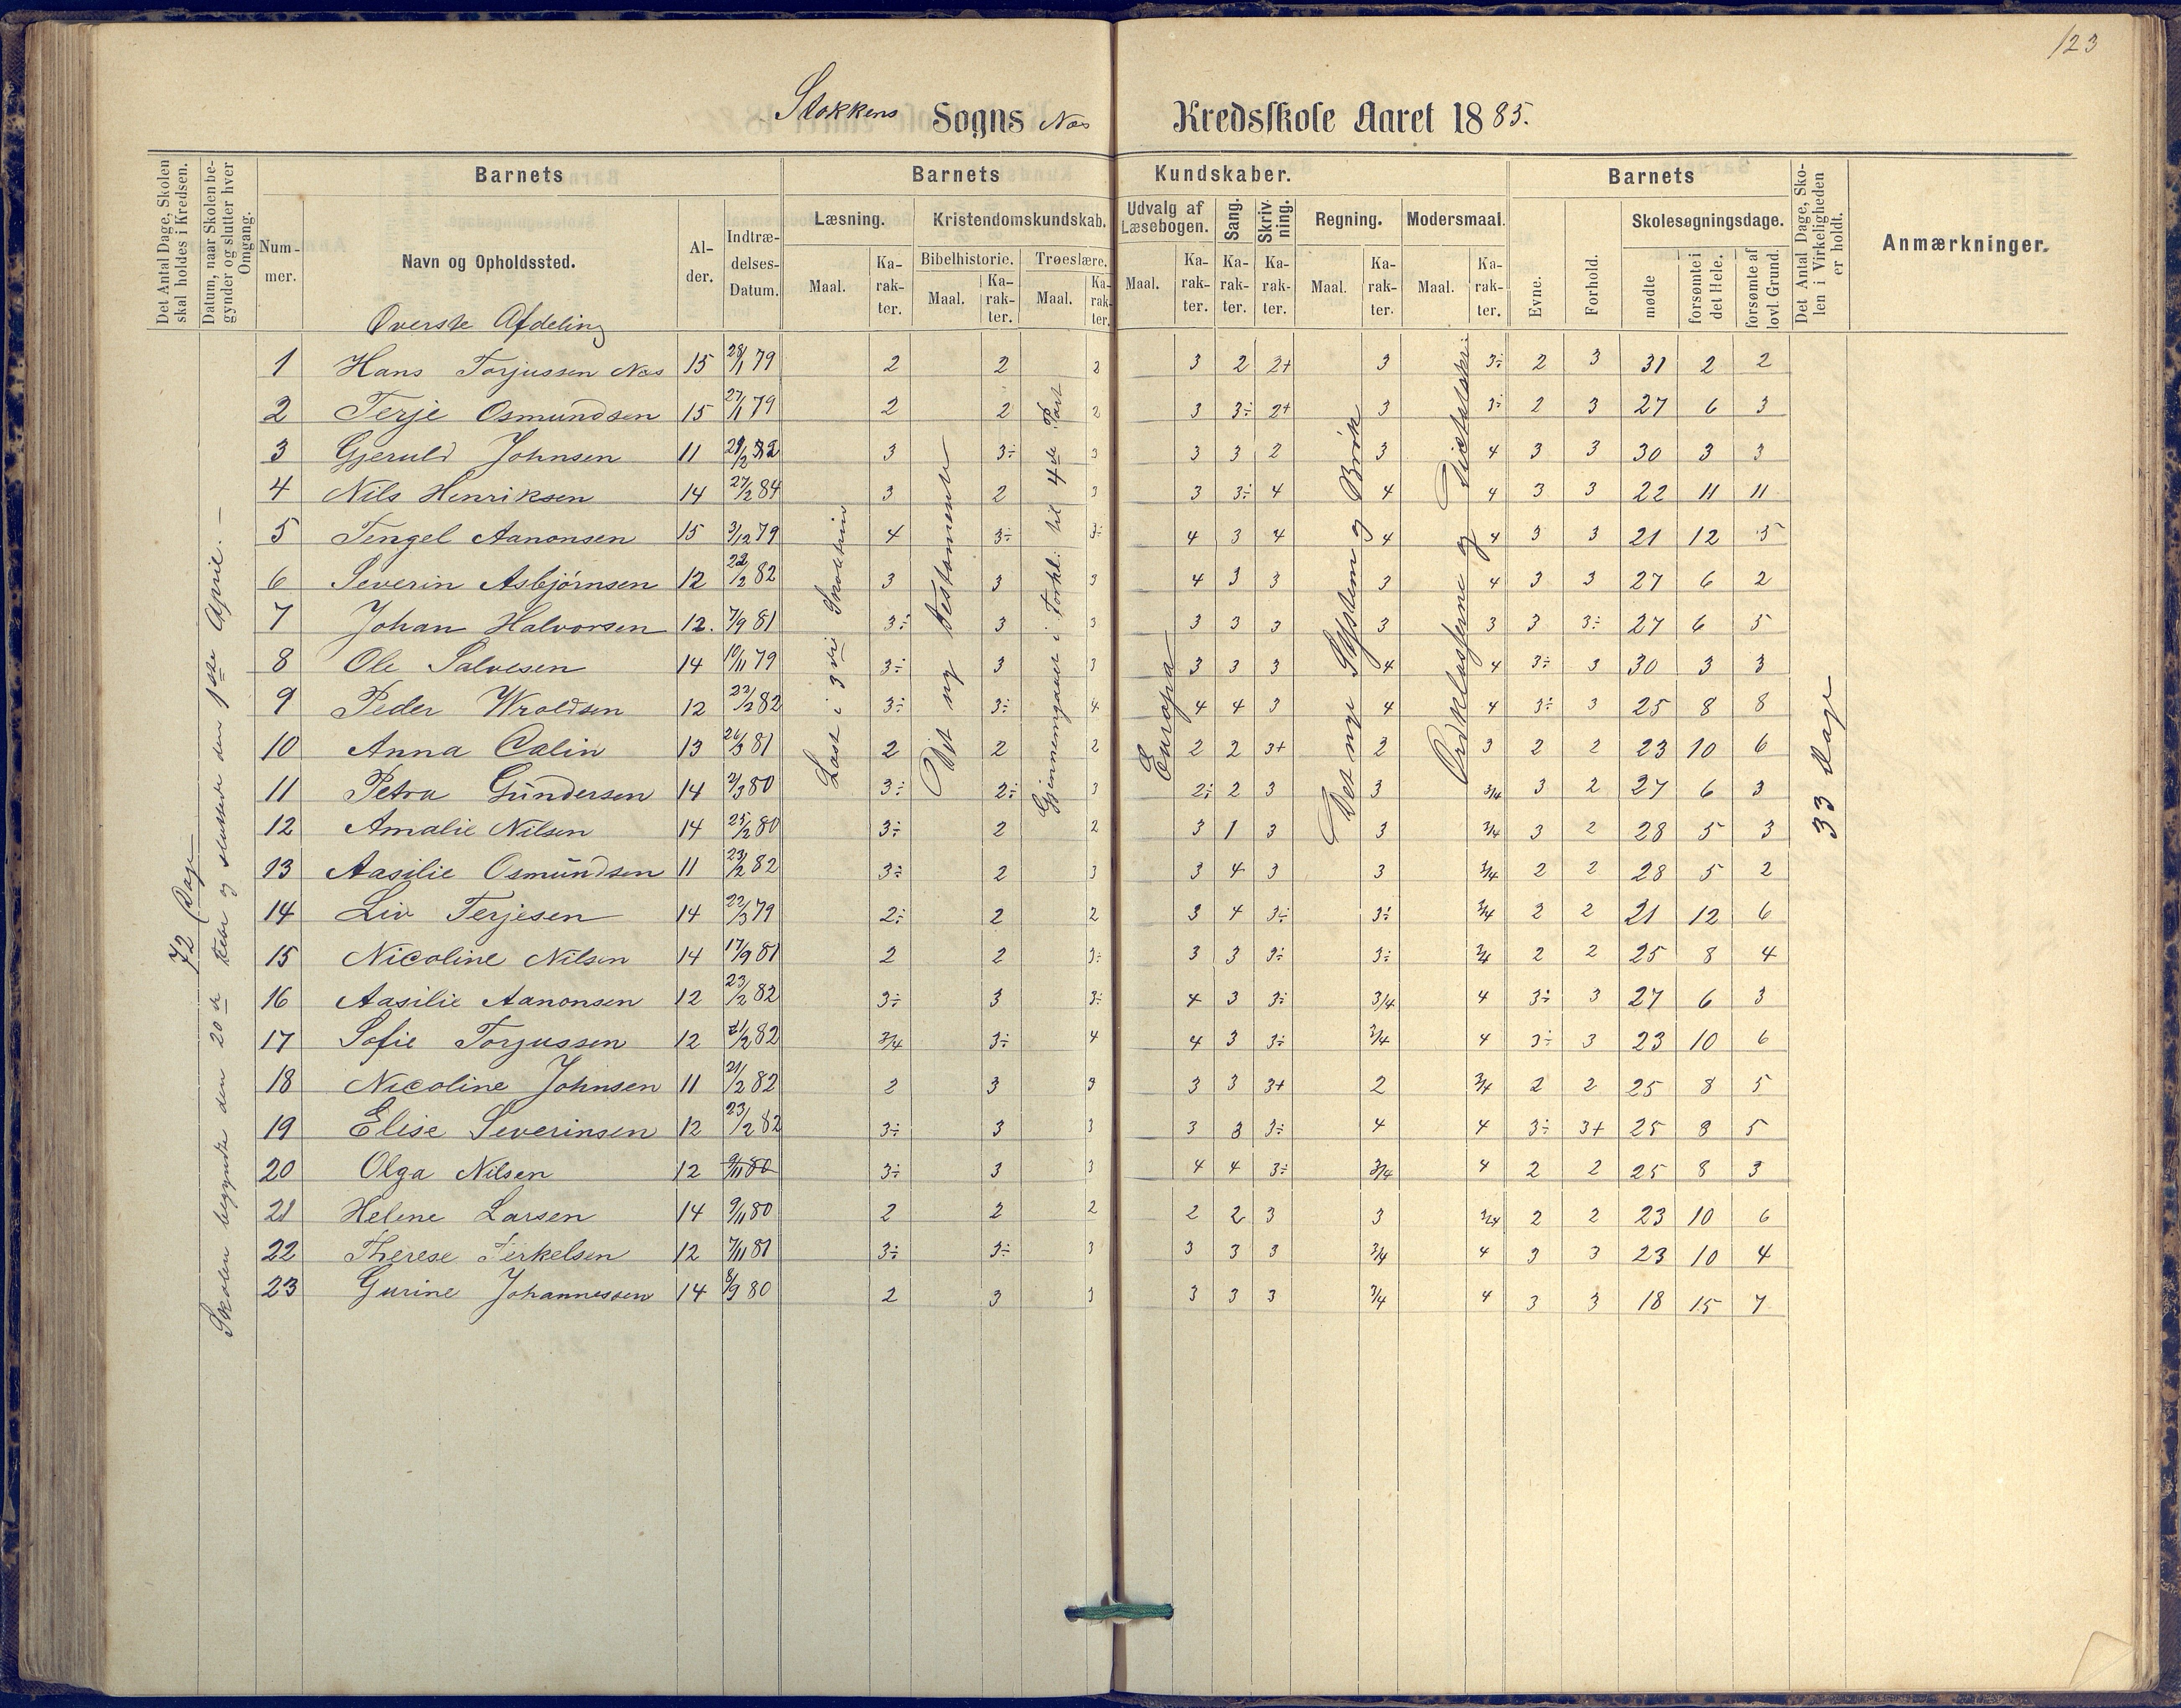 123
Stokkens Sogns Nes Kredsskole Aaret 1885.
Det Antal Dage, Skolen skal holdes i Kredsen.
Datum, naar Skolen begynder og slutter hver Omgang.
Barnets
Num-mer.
Navn og Opholdssted.
Al-der.
Indtræ-delses-Datum.
Barnets Kundskaber.
Læsning.
Maal.
Ka-rak-ter.
Kristendomskundskab.
Bibelhistorie.
Maal.
Ka-rak-ter.
Troeslære.
Maal.
Ka-rak-ter.
Udvalg af Læsebogen.
Maal.
Ka-rak-ter.
Sang.
Ka-rak-ter.
Skriv-ning.
Ka-rak-ter.
Regning.
Maal.
Ka-rak-ter.
Modersmaal.
Maal.
Ka-rak-ter.
Barnets
Evne.
Forhold.
Skolesøgningsdage.
mødte
forsømte i det Hele.
forsømte af lovl. Grund.
Det Antal Dage, Sko-len i Virkeligheden er holdt.
Anmærkninger.
72 Dage
Skolen begyndte den 20de og sluttede den 1ste April. —
Læst i 3die
Det ny Testamente
Gjennemgaaet i Forkl. til 4de Part
Europa
Det nye System og Brøk
Ordklasserne og
33 Dage
Øverste Afdeling
1 Hans Torjussen Nes 15 28/1 79 2 2 2 3 2 2+ 3 3÷ 2 3 31 2 2
2 Terje Osmundsen 15 27/1 79 2 2 2 3 3÷ 2+ 3 3÷ 2 3 27 6 3
3 Gjeruld Johnsen 11 3 3÷ 3 3 3 2 3 4 3 3 30 3 3
4 Nils Henriksen 14 27/2 84 3 2 3 3 3÷ 4 4 4 3 3 22 11 11
5 Tengel Aanonsen 15 3/12 79 4 3÷ 3÷ 4 3 4 4 4 3 3 21 12 5
6 Severin Asbjørnsen 12 22/2 82 3 3 3 4 3 3 3 4 3 3 27 6 2
7 Johan Halvorsen 12. 7/9 81 3÷ 3 3 3 3 3 3 3 3 3÷ 27 6 5
8 Ole Salvesen 14 10/11 79 3÷ 3 3 3 3 3 4 4 3÷ 3 30 3 3
9 Peder Wroldsen 12 22/2 82 3÷ 3÷ 4 4 4 3 4 4 3÷ 3 25 8 8
10 Anna Calin 13 26/3 81 2 2 2 2 2 3+ 2 3 2 2 23 10 6
11 Petra Gundersen 14 2/3 80 3÷ 2÷ 3 2÷ 2 3 3 3/4 3 2 27 6 3
12 Amalie Nilsen 14 25/2 80 3÷ 2 2 3 1 3 3 3/4 3 2 28 5 3
13 Aasilie Osmundsen 11 23/2 82 3÷ 2 3 3 4 3 3 3/4 2 2 28 5 2
14 Liv Terjesen 14 22/3 79 2÷ 2 2 3 4 3÷ 3÷ 3/4 2 2 21 12 6
15 Nicoline Nilsen 14 17/9 81 2 2 3÷ 3 3 3÷ 3÷ 3/4 2 2 25 8 4
16 Aasilie Aanonsen 12 23/2 82 3÷ 3 3÷ 4 3 3÷ 3/4 4 3÷ 3 27 6 3
17 Sofie Torjussen 12 21/2 82 3/4 3÷ 4 4 3 3÷ 3/4 4 3÷ 3 23 10 6
18 Nicoline Johnsen 11 21/2 82 2 3 3 3 3 3+ 2 3/4 2 2 25 8 5
19 Elise Severinsen 12 23/2 82 3÷ 3 3 3 3 3÷ 4 4 3÷ 3+ 25 8 5
20 Olga Nilsen 12 9/11 80 3÷ 3 3 4 4 3÷ 3/4 4 2 2 25 8 3
21 Helene Larsen 14 9/11 80 2 2 2 2 2 3 3 3/4 2 2 23 10 6
22 Therese Terkelsen 12 7/11 81 3÷ 3÷ 3 3 3 3 3/4 4 3 3 23 10 4
23 Gurine Johannessen 14 8/9 80 2 3 3 3 3 3 3/4 4 3 3 18 15 7